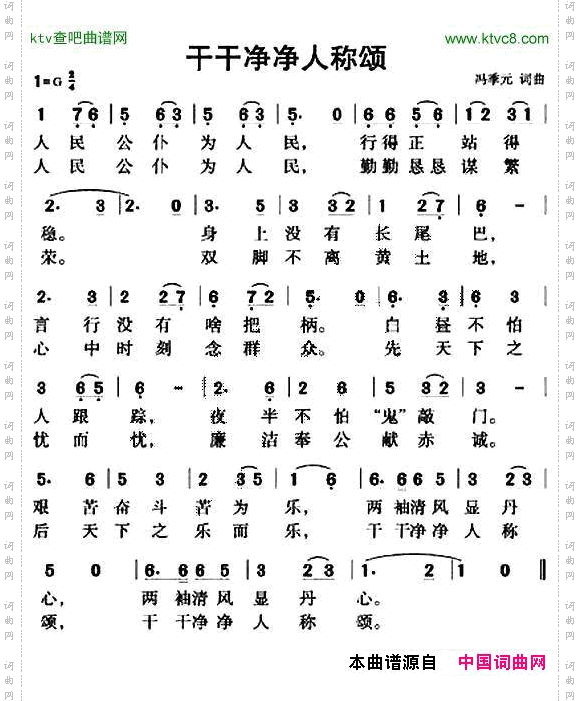 ktv查吧曲谱网
www.ktvc8.com
干干净净人称颂
1=G 2/4
冯季元 词曲
1 7 6 | 5 6 3 | 5 6 3 | 5. 0 | 6 6 5 6 | 1 2 3 1 |
人民公仆为人民，行得正站得
人民公仆为人民，勤勤恳恳谋繁
2. 3 | 2. 0 | 3. 5 | 3 2 3 | 1 2 7 | 6 - |
稳。身上没有长尾巴，
荣。双脚不离黄土地，
2. 3 | 2 2 7 | 6 7 2 | 5. 0 | 6. 3 | 6 3 |
言行没有啥把柄。白昼不怕
心中时刻念群众。先天下之
3 6 5 | 6 - | 2. 2 | 1 2 | 6. 5 | 3 2 3 |
人跟踪，夜半不怕“鬼”敲门。
忧而忧，廉洁奉公献赤诚。
5. 6 | 5 3 | 2 3 5 | 1 6 | 6. 6 6 5 | 3 2 3 |
艰苦奋斗苦为乐，两袖清风显丹
后天下之乐而乐，干干净净人称
5 0 | 6. 6 6 5 | 3 2 3 | 1. 2 | 1 0 ‖
心，两袖清风显丹心。
颂，干干净净人称颂。
本曲谱源自 中国词曲网
词曲网